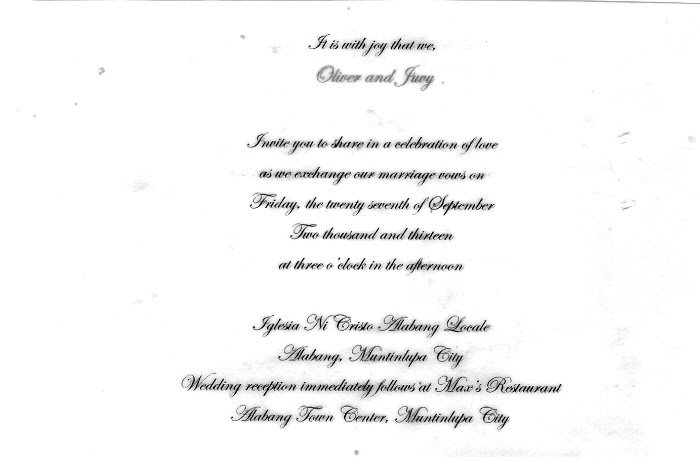 It is with joy that we,
Oliver and Juvy
Invite you to share in a celebration of love
as we exchange our marriage vows on
Friday, the twenty seventh of September
Two thousand and thirteen
at three o'clock in the afternoon
Iglesia Ni Cristo Alabang Locale
Alabang, Muntinlupa City
Wedding reception immediately follows at Max's Restaurant
Alabang Town Center, Muntinlupa City